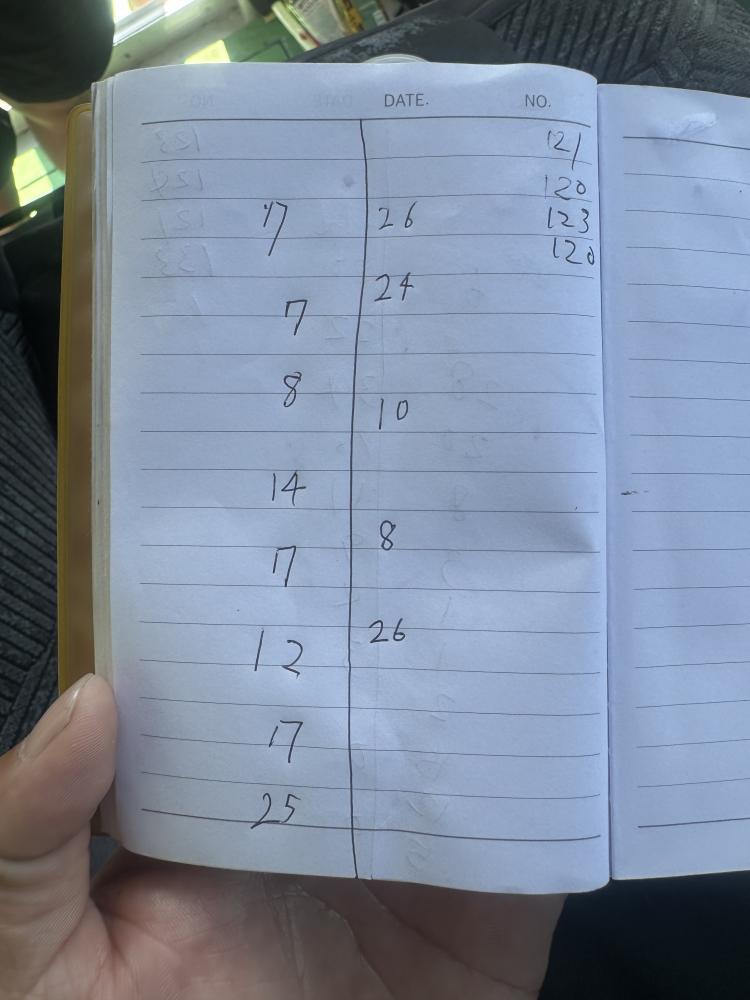 DATE. NO.
121
120
17 26 123
120
24
7
8
10
14
8
17
26
12
17
25